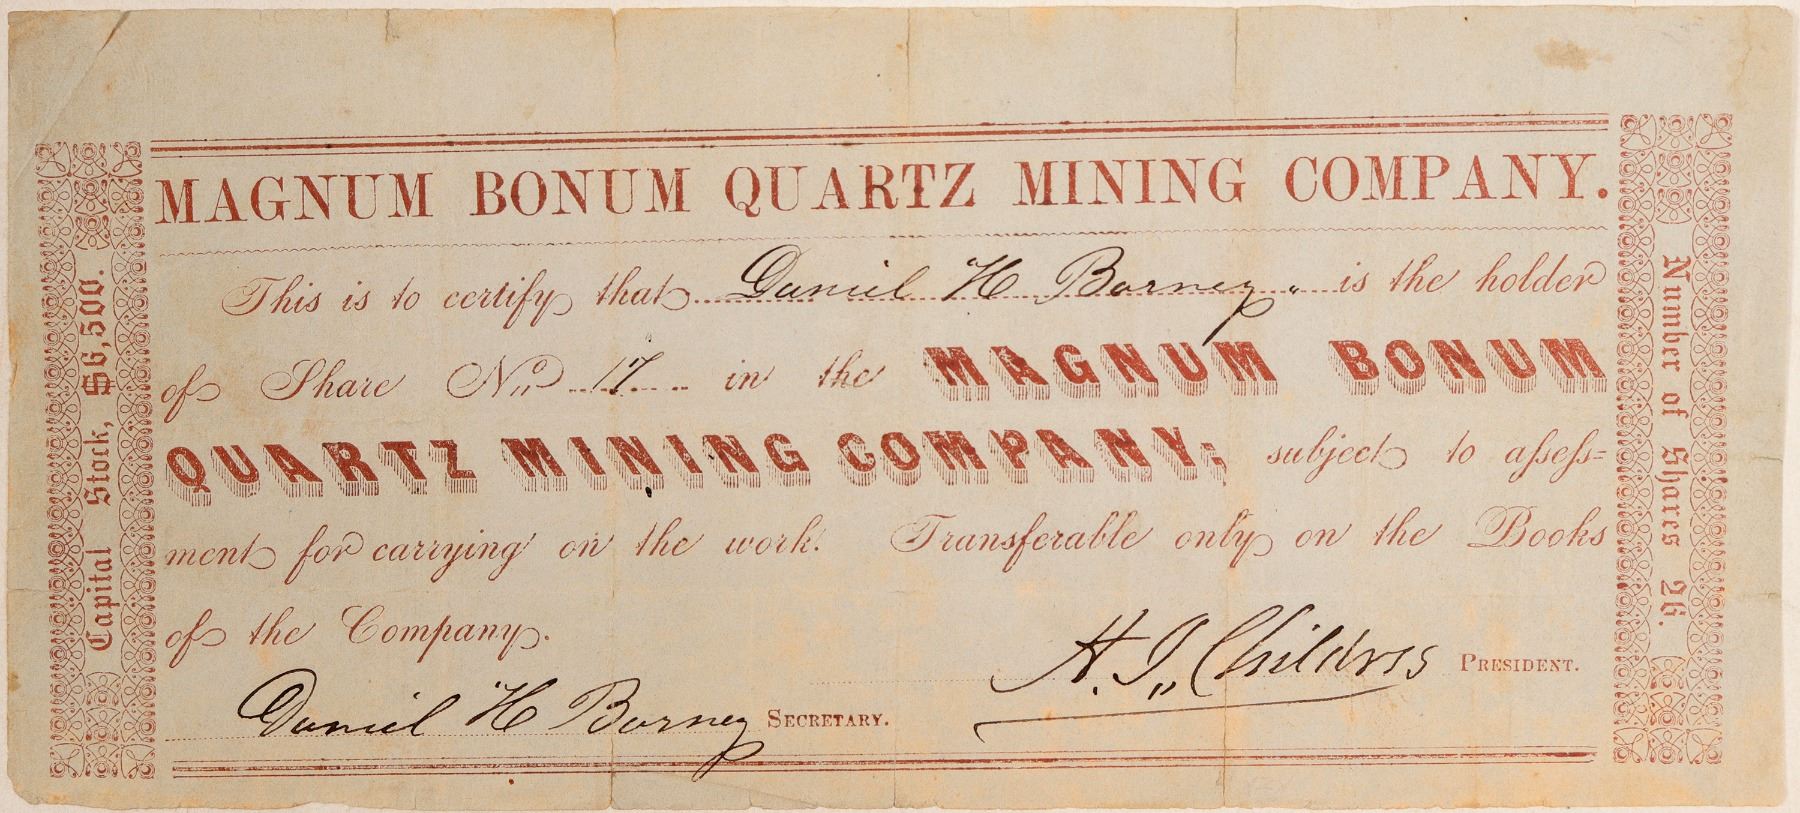 MAGNUM BONUM QUARTZ MINING COMPANY.
This is to certify that Daniel H Barney is the holder
of Share No 17 in the MAGNUM BONUM
QUARTZ MINING COMPANY; subject to assess=
ment for carrying on the work. Transferable only on the Books
of the Company.
H. J. Childress PRESIDENT.
Daniel H Barney SECRETARY.
Capital Stock, $6,500.
Number of Shares 26.